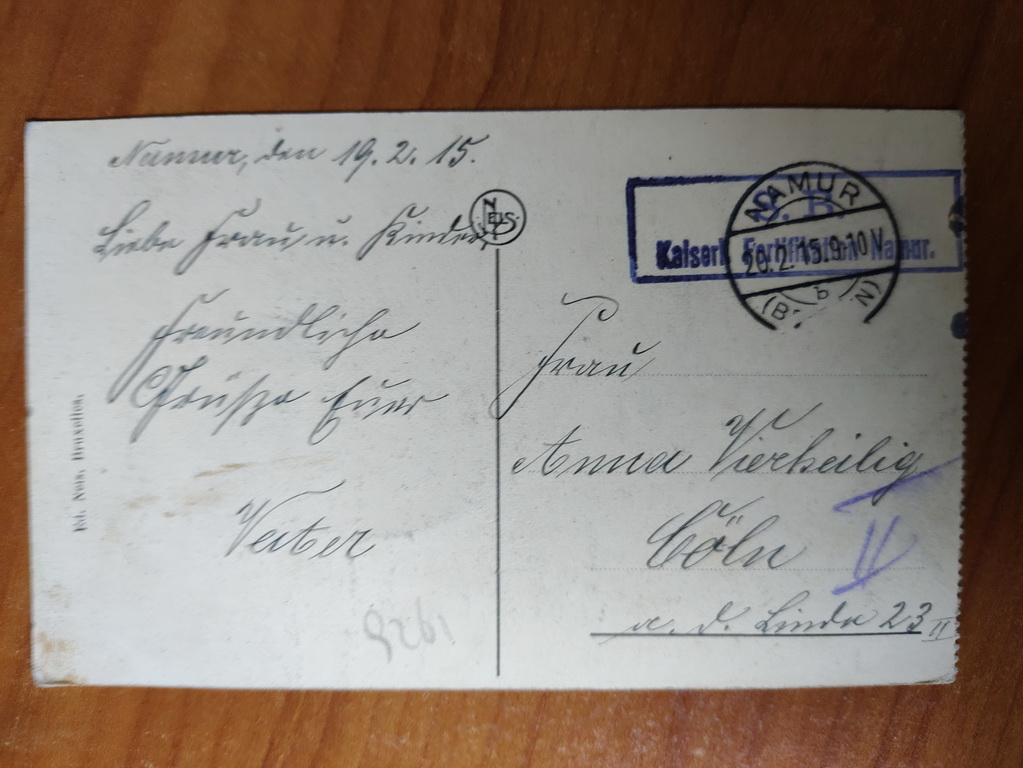 Namur, den 19. 2. 15.
Liebe Frau u. Kinder,
Freundliche
Grüße Euer
Vater
Ed. Nels, Bruxelles.
NELS
S. B.
Kaiserl. Fortifikation Namur.
NAMUR
20.2.15.9-10V
b
Frau
Anna Vierheilig
Cöln
II
a. d. Linde 23 II